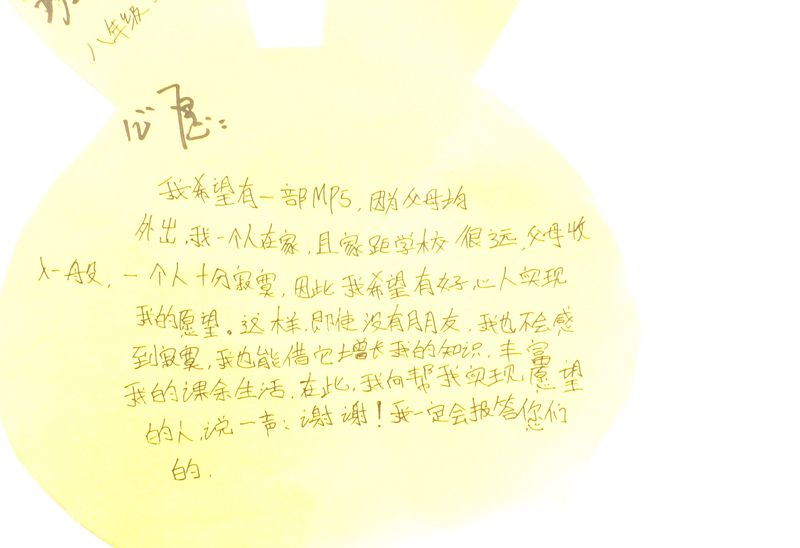 八年级
心愿:
我希望有一部MP5,因为父母均
外出,我一个人在家,且家距学校很远,父母收
入一般,一个人十分寂寞,因此我希望有好心人实现
我的愿望。这样,即使没有朋友,我也不会感
到寂寞,我也能借它增长我的知识,丰富
我的课余生活,在此,我向帮我实现愿望
的人,说一声:谢谢!我一定会报答您们
的.